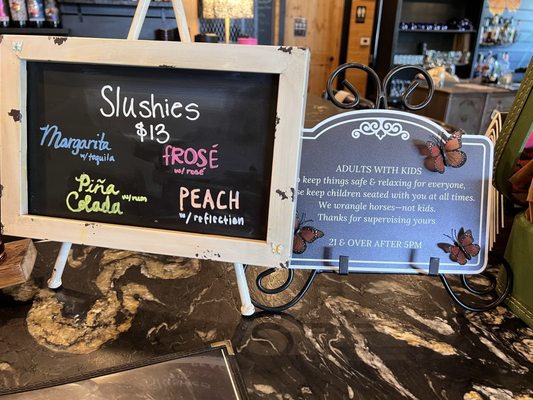 Slushies
$13
Margarita
w/tequila
FROSÉ
w/ ROSÉ
Piña
Colada w/ rum
PEACH
w/ reflection
ADULTS WITH KIDS
keep things safe & relaxing for everyone,
keep children seated with you at all times.
We wrangle horses—not kids.
Thanks for supervising yours.
21 & OVER AFTER 5PM